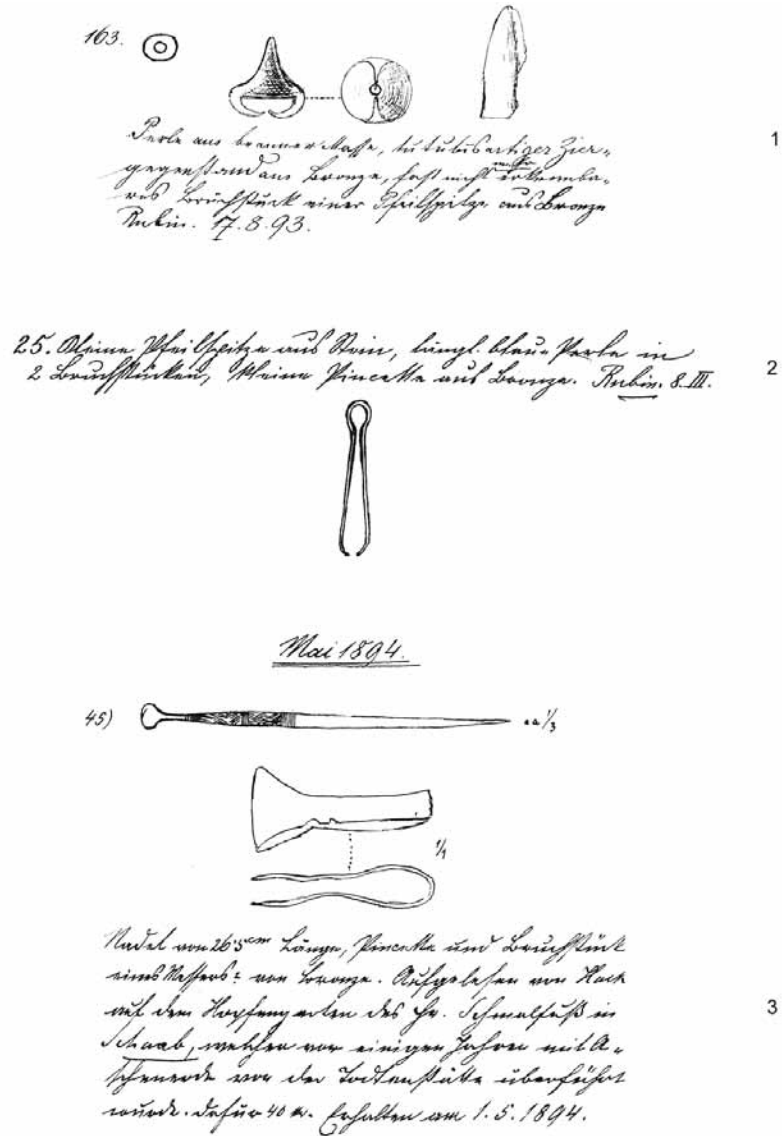 163.
Perle aus brauner Masse, tutulusartiger Zier-
gegenstand aus Bronze, fast nicht mehr erkennba-
res Bruchstück einer Pfeilspitze aus Bronze
Rubin. 17.8.93.
1
25. Kleine Pfeilspitze aus Stein, längl. blaue Perle in
2 Bruchstücken, kleine Pincette aus Bronze. Rubin. 8.III.
2
Mai 1894.
45)
1/3
1/1
Nadel von 26·5 cm Länge, Pincette und Bruchstück
eines Messers: von Bronze. Aufgelesen von
auf dem Hopfengarten des Hr. Schmalfuß in
Schaab, welcher vor einigen Jahren mit A-
schenerde von der Todtenstätte überführt
wurde. Dafür 40 Erhalten am 1.5.1894.
3